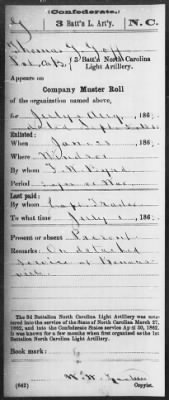 (Confederate.)
3 Batt's L. Art'y. N. C.
Thomas G. Goff
3 Batt's North Carolina
Light Artillery.
Appears on
Company Muster Roll
of the organization named above,
for July & Aug, 186
Enlisted:
When Jan 23, 186
Where Windsor
By whom
Period
Last paid:
By whom Capt. Frader
To what time July 1, 186
Present or absent Present
Remarks: On detached
service at
The 3d Battalion North Carolina Light Artillery was mustered
into the service of the State of North Carolina March 27,
1862, and into the Confederate States service April 30, 1862.
It was known for a few months when first organized as the 1st
Battalion North Carolina Light Artillery.
Book mark:
(642) Copyist.